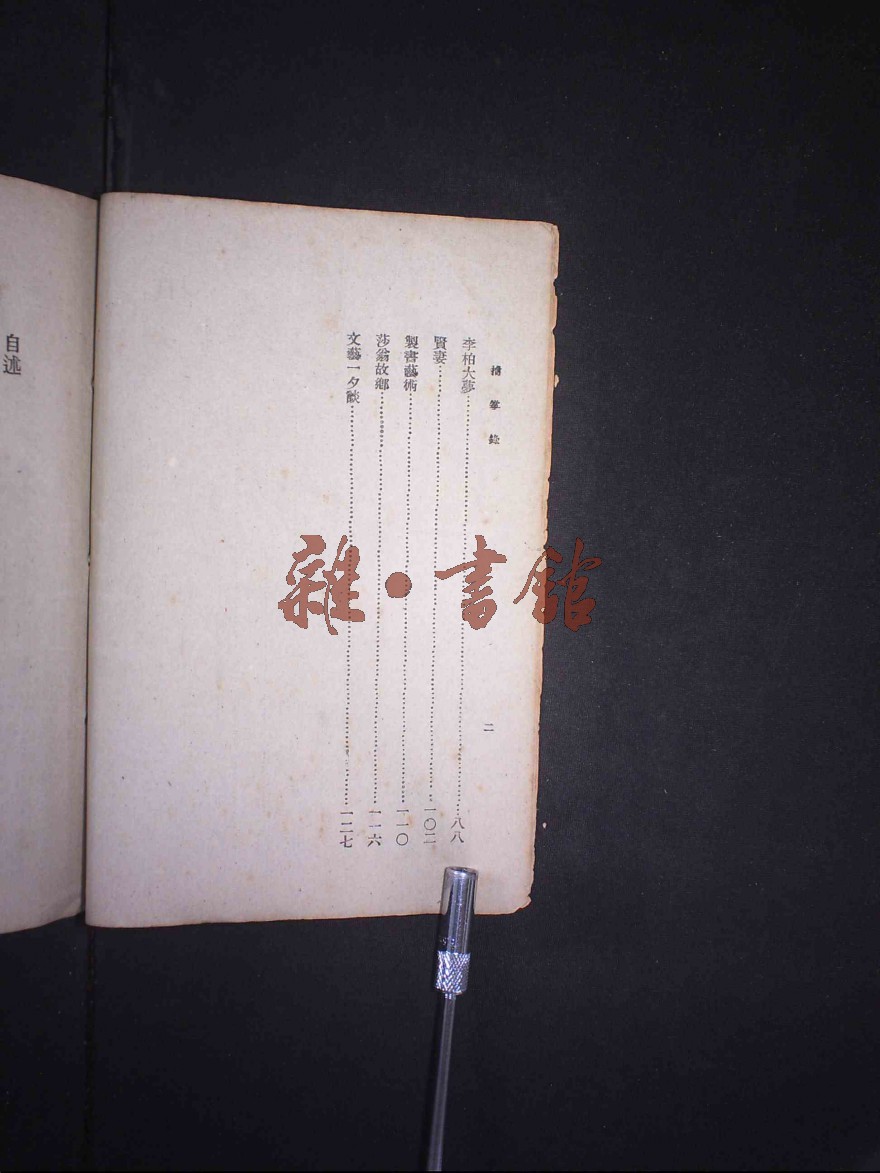 拊掌錄
二
李柏大夢……八八
賢妻……一〇二
製書藝術……一一〇
莎翁故鄉……一一六
文藝一夕談……一二七
自述
雜·書館